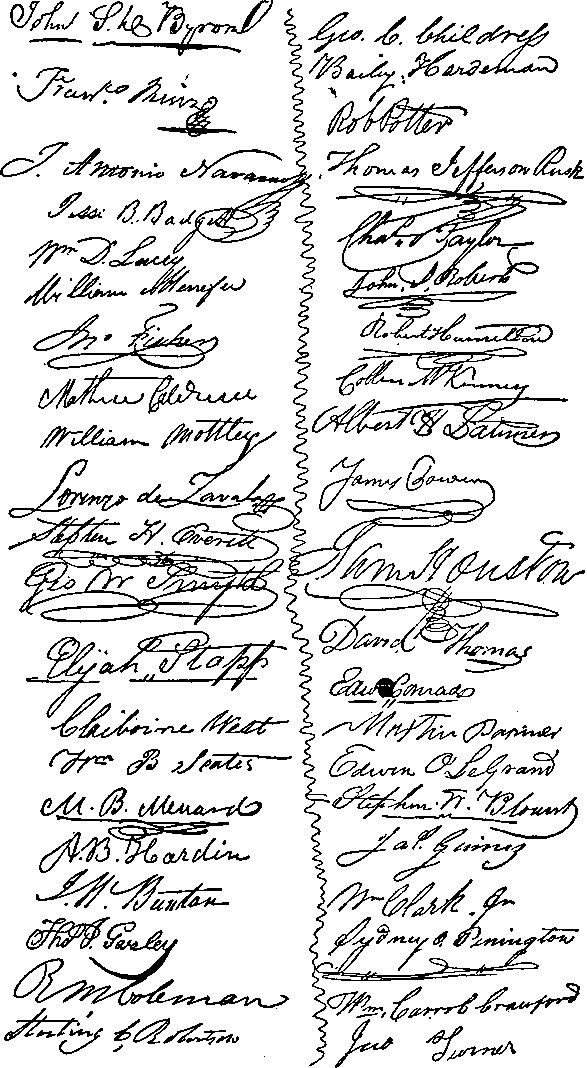 John S. D. Byrom
Franco Ruiz
J. Antonio Navarro
Jesse B. Badgett
Wm D. Lacey
William Menefee
Jno. Fisher
Mathew Caldwell
William Mottley
Lorenzo de Zavala
Stephen H. Everitt
Geo W Smyth
Elijah Stapp
Claiborne West
Wm B Scates
M. B. Menard
A. B. Hardin
J. W. Bunton
Thos J. Gasley
R M Coleman
Sterling C. Robertson
Geo. C. Childress
Baily Hardeman
Rob Potter
Thomas Jefferson Rusk
Chas. S Taylor
John S. Roberts
Robert Hamilton
Collin McKinney
Albert H Latimer
James Power
Sam Houston
David Thomas
Edwd Conrad
Martin Parmer
Edwin O LeGrand
Stephen W. Blount
Jas. Gaines
Wm Clark, Jr
Sydney O. Penington
Wm. Carrol Crawford
Jno Turner